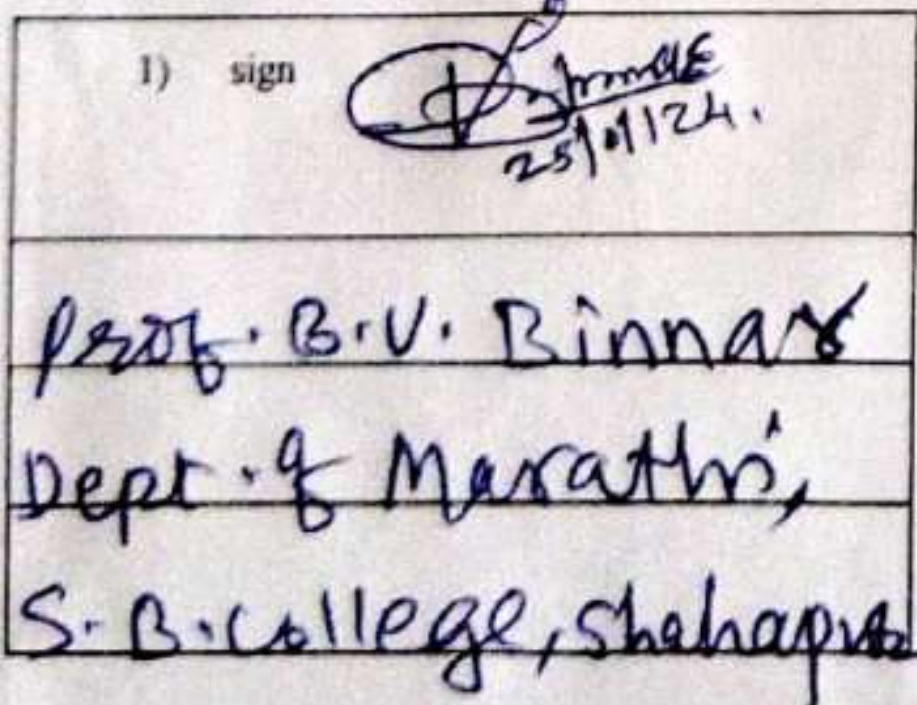 1) sign
25/01/24.
Prof. B. V. Binnar
Dept. of Marathi,
S. B. College, Shahapur